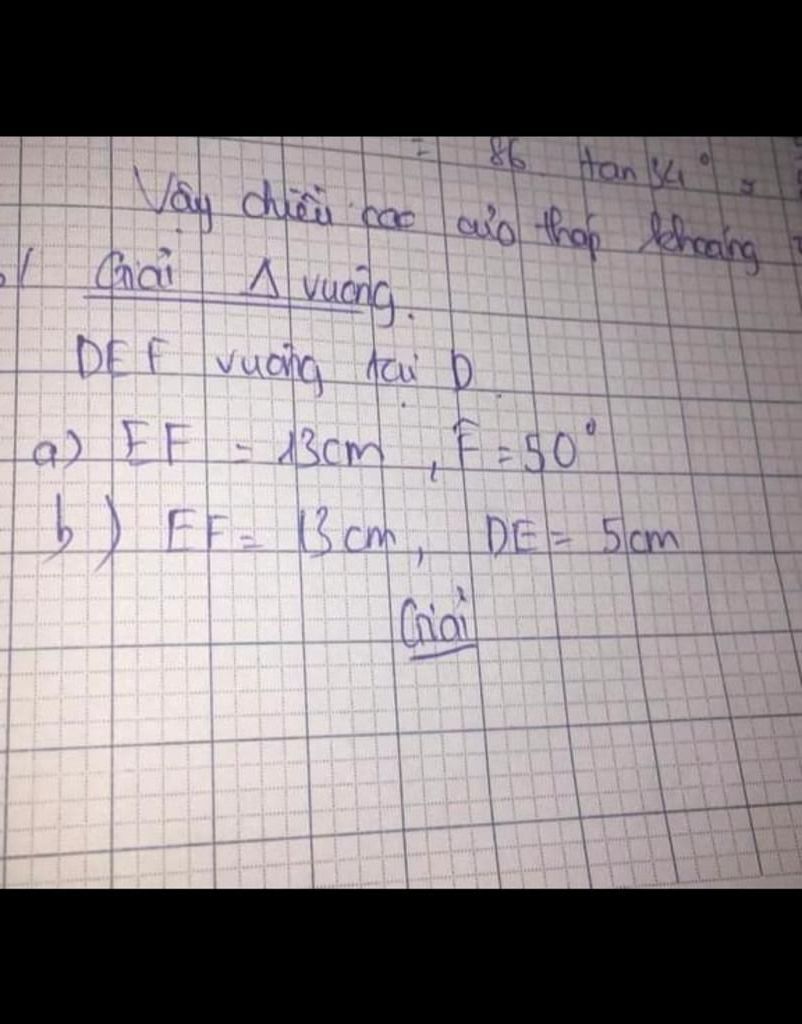 = 86 tan 34° ≈
Vậy chiều cao của tháp khoảng
Giải Δ vuông.
DEF vuông tại D.
a) EF = 13cm, F̂ = 50°
b) EF = 13 cm, DE = 5cm
Giải